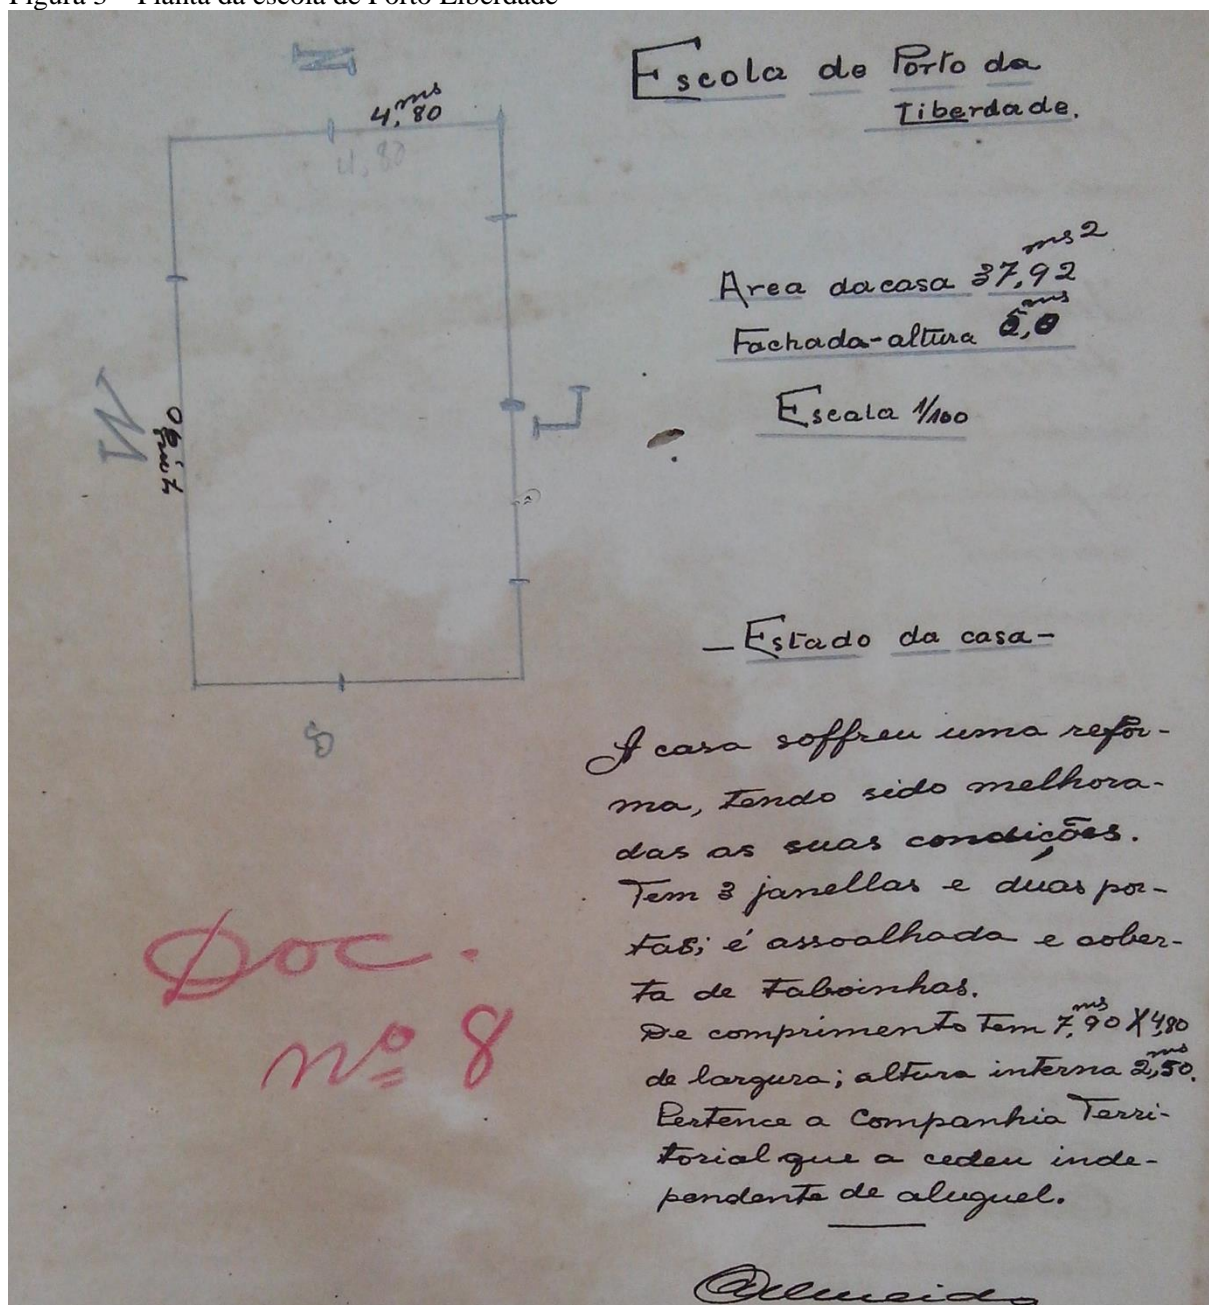 Figura 3 – Planta da escola de Porto Liberdade
N
4,80 ms
4,80
W
7,90 ms
L
S
Doc.
nº 8
Escola do Porto da
Liberdade.
Area da casa 37,92 ms2
Fachada-altura ms
Escala 1/100
- Estado da casa -
A casa soffreu uma refor-
ma, tendo sido melhora-
das as suas condições.
Tem 3 janellas e duas por-
tas; é assoalhada e cober-
ta de taboinhas.
De comprimento tem 7,90 ms X 4,80
de largura; altura interna 2,50 ms.
Pertence a Companhia Terri-
torial que a cedeu inde-
pendente de aluguel.
Almeida